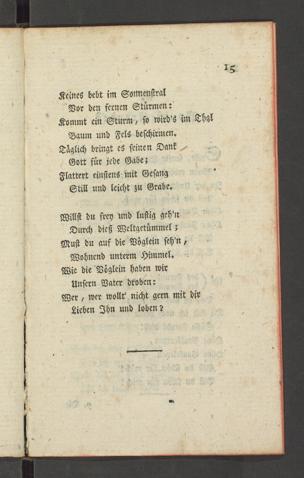 15
Keines bebt im Sonnenstral
Vor den fernen Stürmen:
Kommt ein Sturm, so wird's im Thal
Baum und Fels beschirmen.
Täglich bringt es seinen Dank
Gott für jede Gabe;
Flattert einstens mit Gesang
Still und leicht zu Grabe.
Willst du frey und lustig geh'n
Durch dieß Weltgetümmel;
Must du auf die Vöglein seh'n,
Wohnend unterm Himmel.
Wie die Vöglein haben wir
Unsern Vater droben:
Wer, wer wollt' nicht gern mit dir
Lieben Ihn und loben?